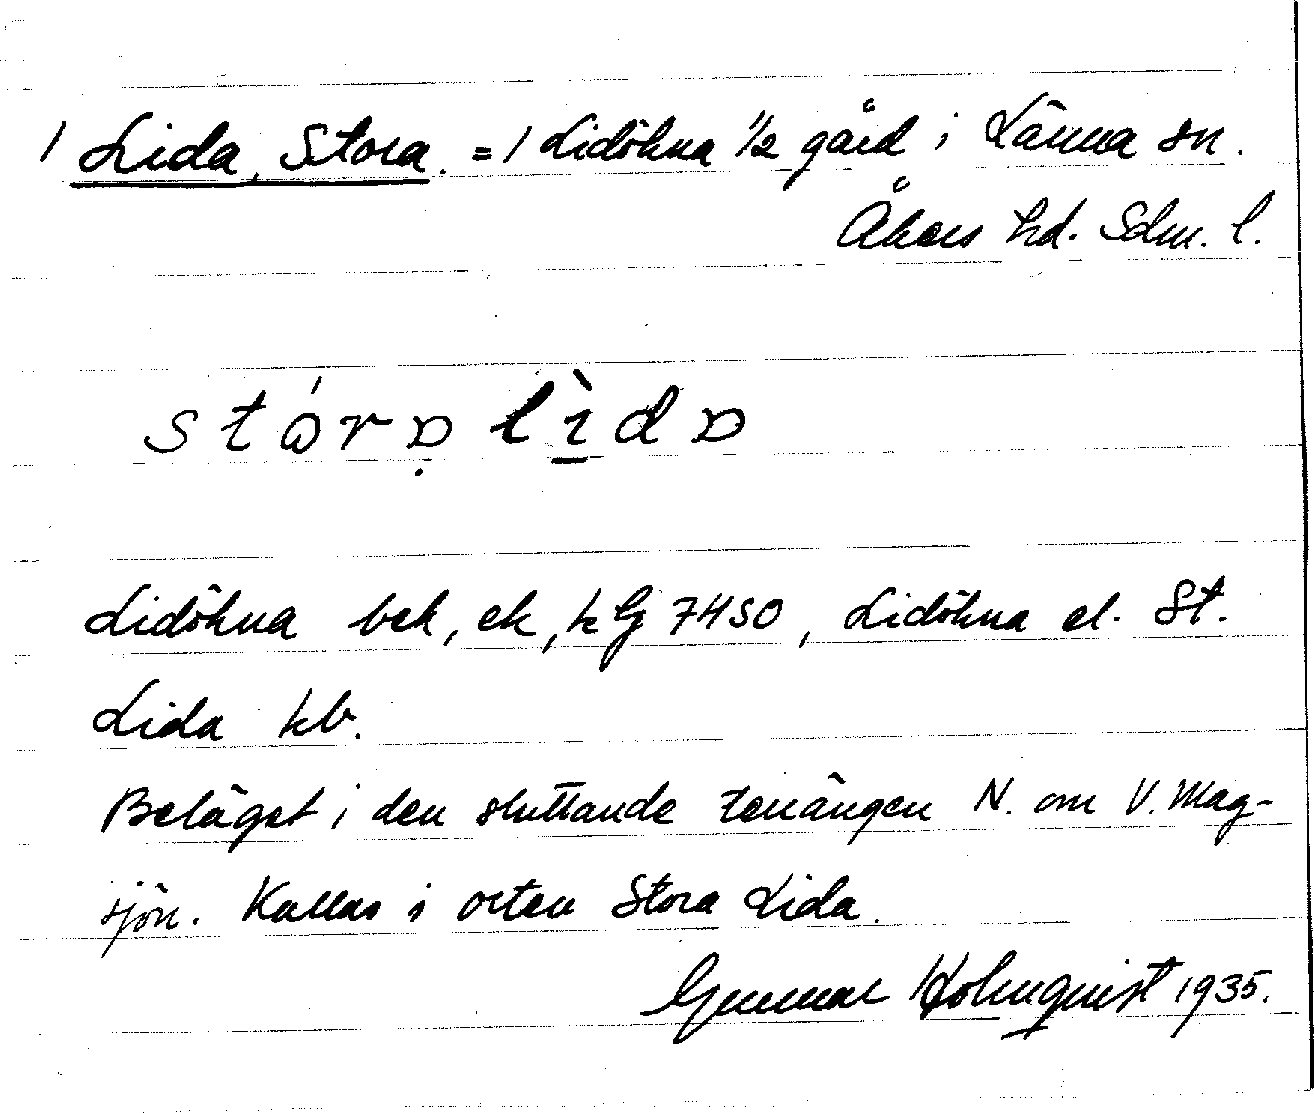 1 Lida, Stora. = 1 Lidökna 1/2 gård i Länna sn.
Åkers hd. Sdm. l.
stóra lìda
Lidökna bek, ek, k Gj 7450, Lidökna el. St.
Lida kb.
Beläget i den sluttande terrängen N. om V. Mag-
sjön. Kallas i orten Stora Lida.
Gunnar Holmquist 1935.